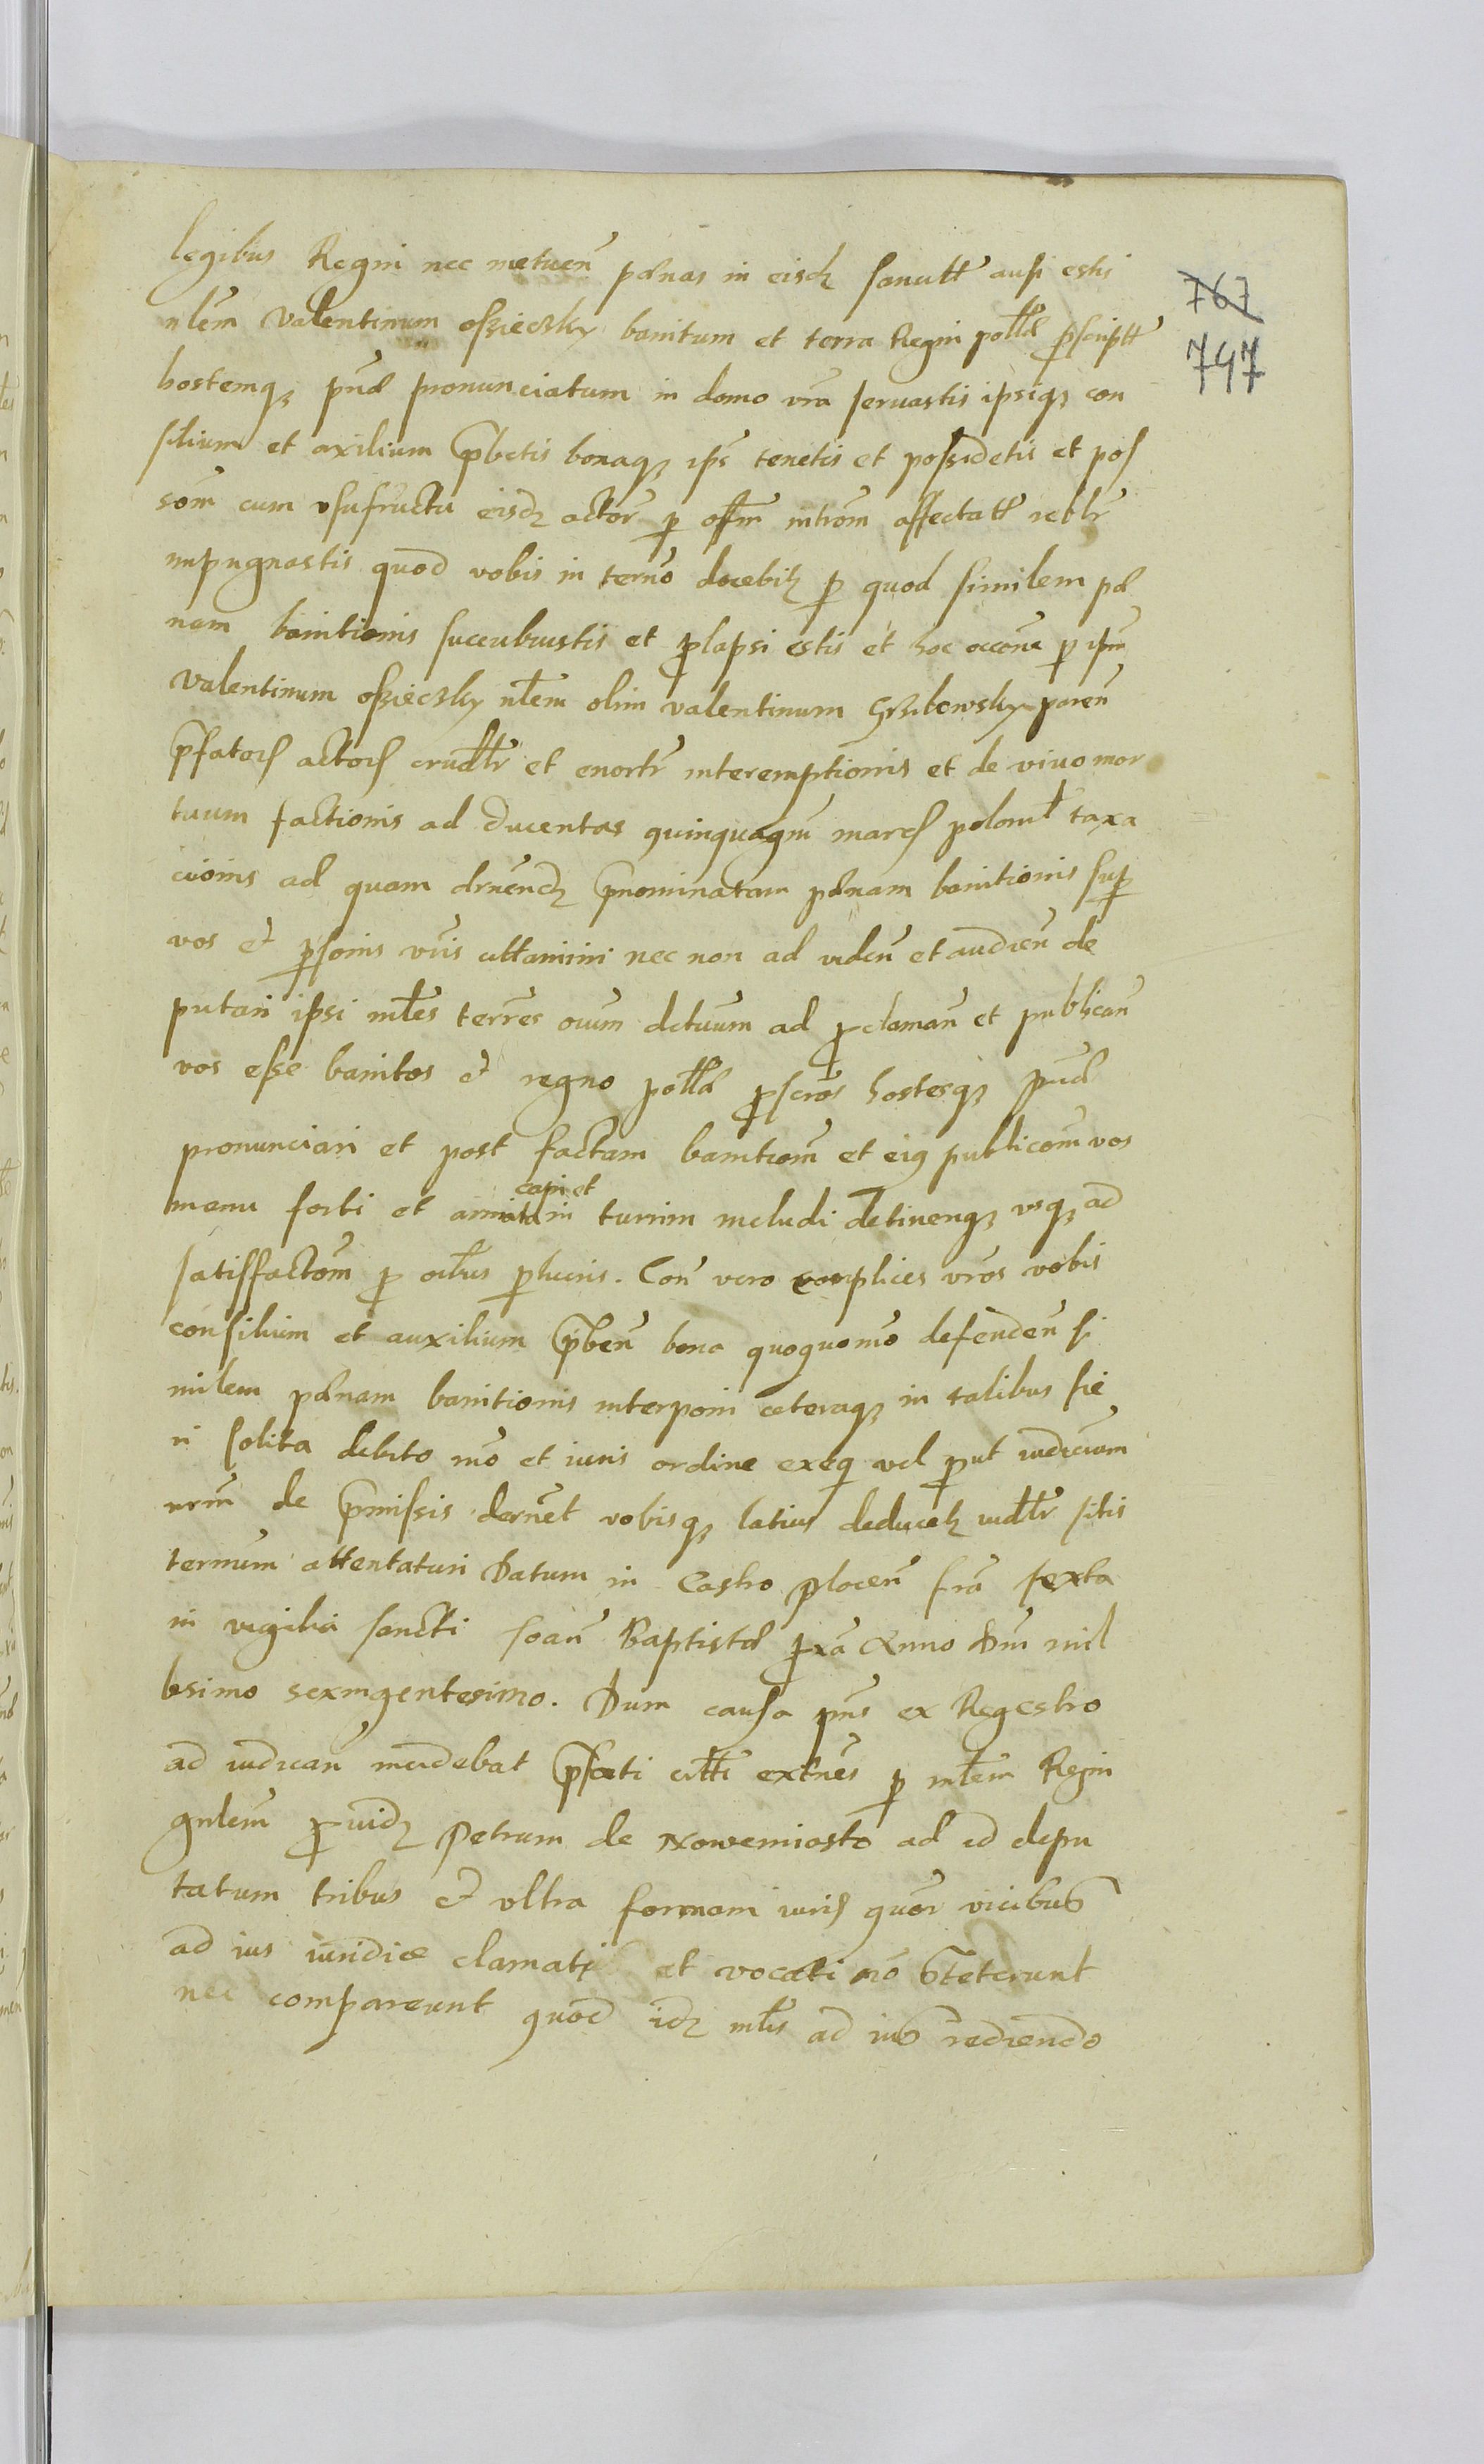 legibus Regni nec metuen̄ pœnas in eisdē sancitt ausi estis
nlēm Valentinum ossieczky banitum et terra Regni pollæ proscriptt
hostemq; pnæ pronunciatum in domo vrā servastis ipsiq; con
silium et axilium præbetis bonaq; ips tenetis et possidetis et pos
sōm cum vsufructu eisdē actor̄ p offm intrōm affectatt rebltr
impugnastis quod vobis in termo docebit p quod similem pœ
nam banitionis succubuistis et prolapsi estis et hoc occōne p ipm
Valentinum ossieczky nlēm olim valentinum Grzibowsky paren̄
præfator actor crudltr et enortr interemptionis et de vivo mor
tuum factionis ad ducentas quinquagm marc polonl taxa
cionis ad quam drnēndē prænominatam pœnam banitionis sup
vos et psonis vris cittamini nec non ad viden̄ et audien̄ de
putari ipsi mlēs terrēs oium detuum ad proclaman̄ et publican̄
vos esse banitos et regno pollæ proscrōs hostesq; pnæ
pronunciari et post factam banitiōm et eiq publicōm vos
manu forti et armata in turrim includi detineriq; usq; ad
capi et
satisffactōm p oibus plucris. Con̄ vero complices vrōs vobis
consilium et auxilium præben̄ bona quoquomō defenden̄ si
milem pœnam banitionis interponi ceteraq; in talibus fie
ri solita debito mō et iuris ordine exeq vel prout iudicium
nrm de præmissis dernet vobisq; latius deducet iudltr sitis
termum attentaturi Datum in Castro plocen̄ fra sexta
in vigilia sancti Joan̄ Baptistæ prxa Anno dni mil
lesimo sexingentesimo. Dum causa pns ex Regestro
ad iudican̄ incidebat præfati citti extnes p mlēm Regni
gnlem providē Petrum de Nowemiasto ad id depu
tatum tribus et vltra formam iuris quor vicibus
ad ius iuridice clamati et vocati nō steterunt
nec comparerunt quod idē mlis ad ius rediendo
767
747